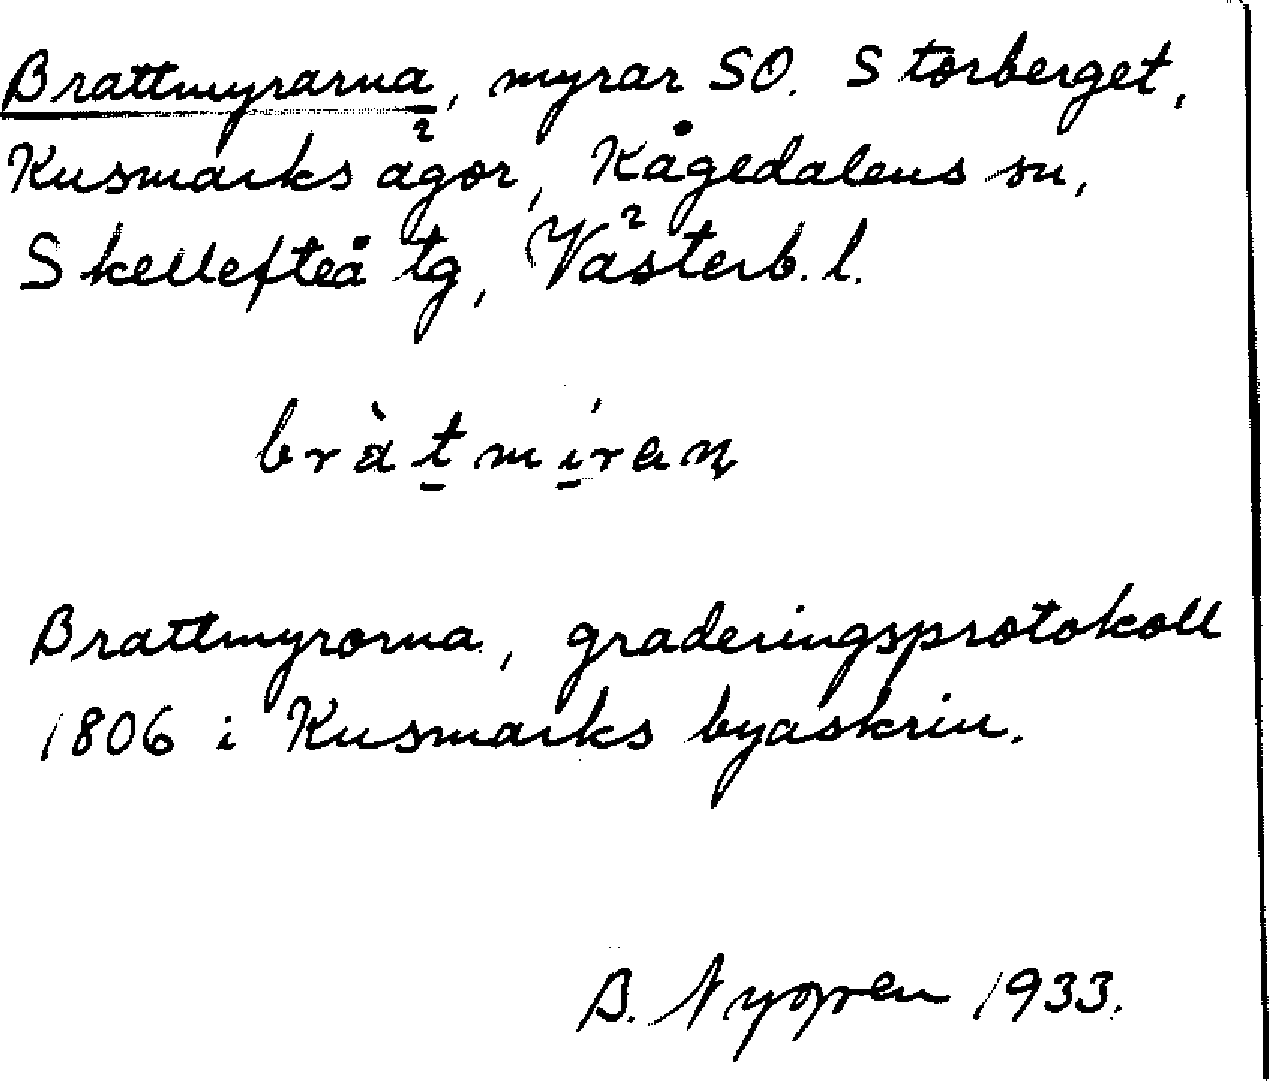 Brattmyrarna, myrar SO. Storberget,
Kusmarks ägor, Kågedalens sn,
Skellefteå tg, Västerb. l.
bràt̲mí̲raɳ
Brattmyrorna, graderingsprotokoll
1806 i Kusmarks byaskrin.
B. Nygren 1933.